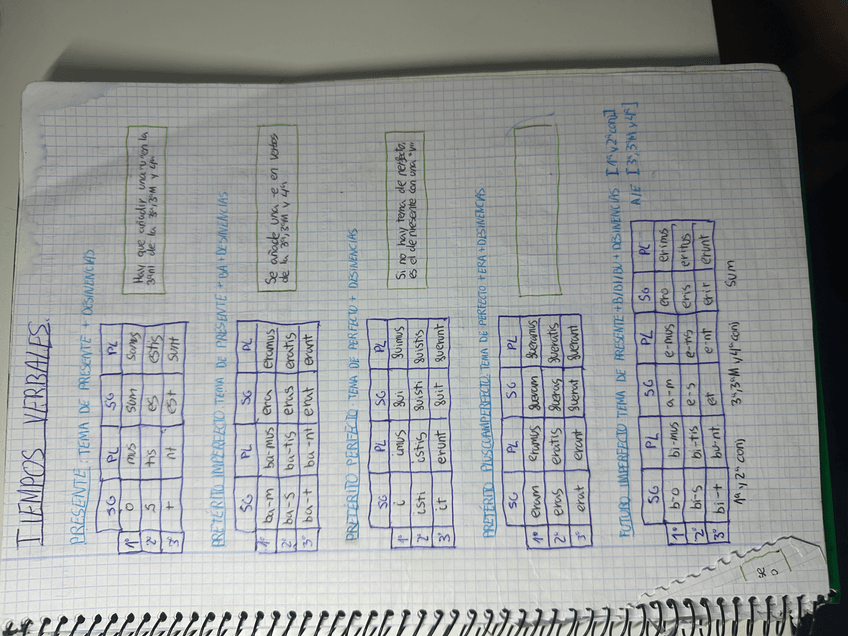 TIEMPOS VERBALES.
PRESENTE: TEMA DE PRESENTE + DESINENCIAS
SG PL SG PL
1º o mus sum sumus
2º s tis es estis
3º t nt est sunt
Hay que añadir una -u- en la
3ª pl de la 3ª, 3ªM y 4ª.
PRETÉRITO IMPERFECTO TEMA DE PRESENTE + BA + DESINENCIAS
SG PL SG PL
1º ba-m ba-mus era eramus
2º ba-s ba-tis eras eratis
3º ba-t ba-nt erat erant
Se añade una -e en verbos
de la 3ª, 3ªM y 4ª
PRETÉRITO PERFECTO TEMA DE PERFECTO + DESINENCIAS
SG PL SG PL
1º i imus fui fuimus
2º isti istis fuisti fuistis
3 it erunt fuit fuerunt
Si no hay tema de perfecto,
es el de presente con una "v"
PRETÉRITO PLUSCUAMPERFECTO TEMA DE PERFECTO + ERA + DESINENCIAS
SG PL SG PL
1º eram eramus fueram fueramus
2º eras eratis fueras fueratis
3º erat erant fuerat fuerant
FUTURO IMPERFECTO TEMA DE PRESENTE + B/BI/BU + DESINENCIAS [1ª y 2ª conj]
A/E [3ª, 3ªM y 4ª]
SG PL SG PL SG PL
1º b-o bi-mus a-m e-mus ero erimus
2º bi-s bi-tis e-s e-tis eris eritis
3º bi-t bu-nt et e-nt erit erunt
1ª y 2ª conj 3ª, 3ªM y 4ª conj sum
se
o